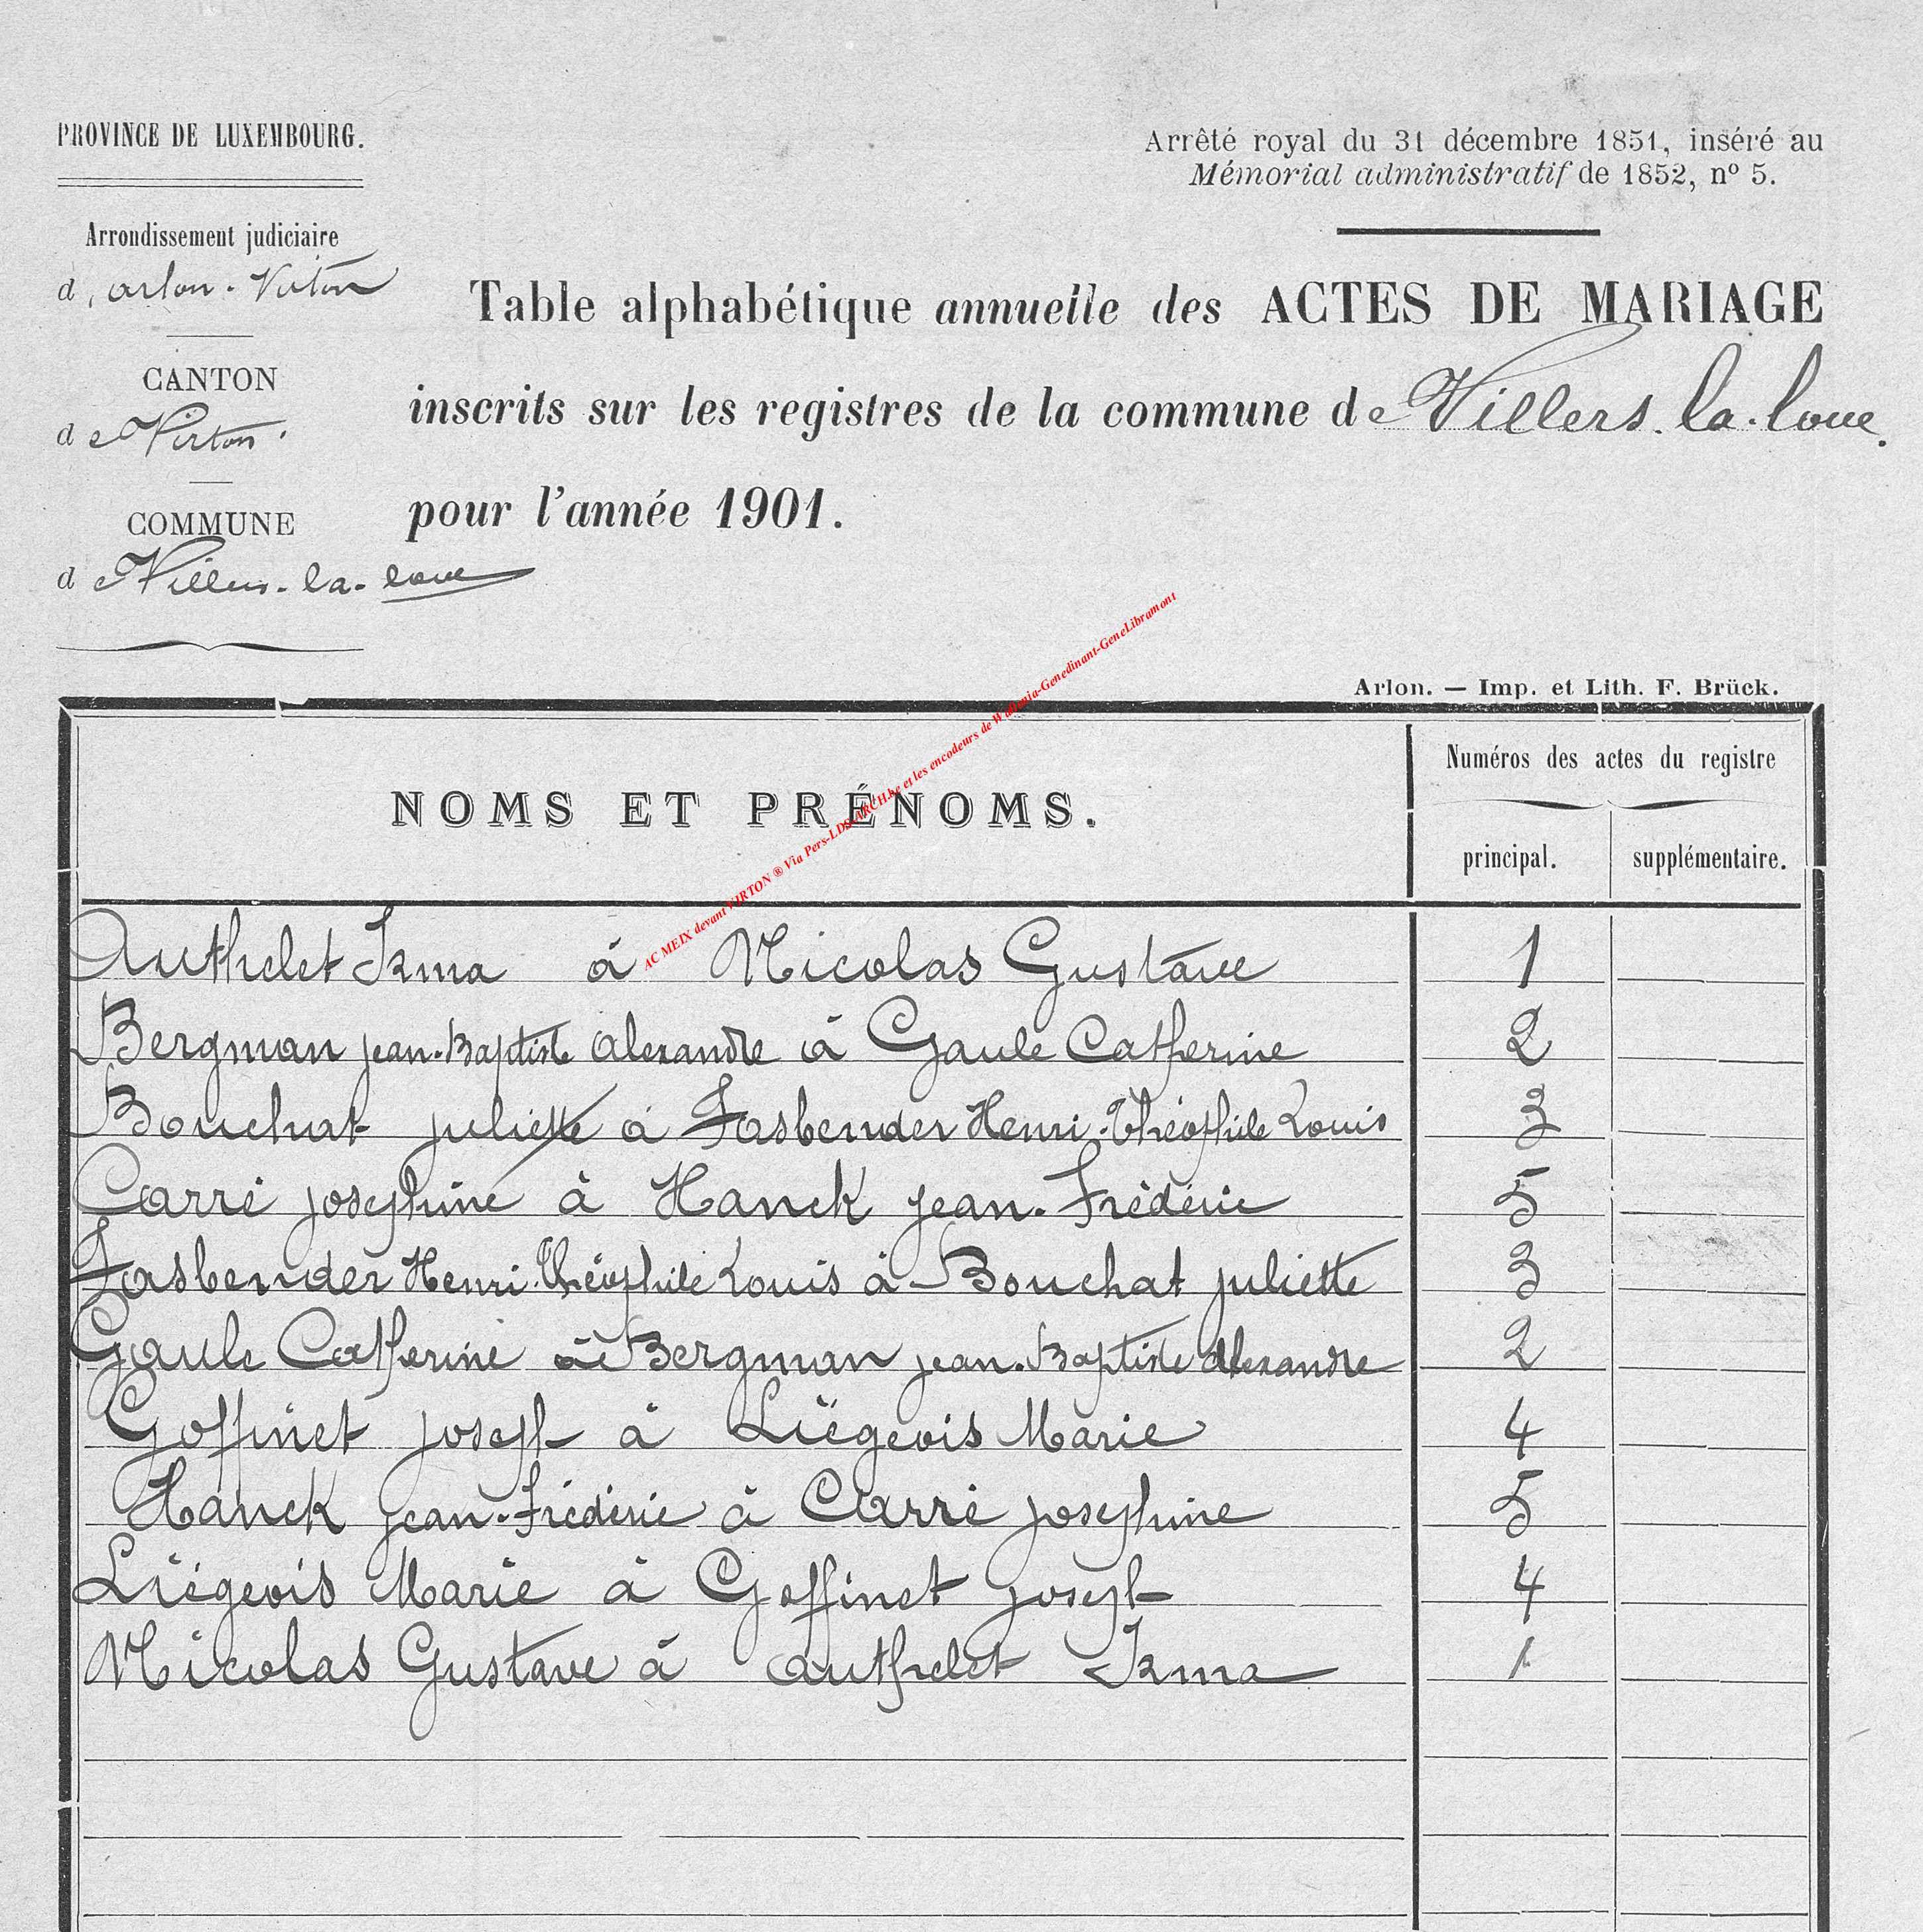 PROVINCE DE LUXEMBOURG.
Arrêté royal du 31 décembre 1851, inséré au
Mémorial administratif de 1852, nº 5.
Arrondissement judiciaire
d'arlon-Virton
CANTON
de Virton.
COMMUNE
de Villers-la-loue
Table alphabétique annuelle des ACTES DE MARIAGE
inscrits sur les registres de la commune de Villers-la-loue.
pour l'année 1901.
Arlon. — Imp. et Lith. F. Brück.
NOMS ET PRÉNOMS.
Numéros des actes du registre
principal. supplémentaire.
AC MEIX devant VIRTON ® Via Pers-LDS-ARCH.be et les encodeurs de Waltenia-Genedinant-GeneLibramont
Authelet Irma à Nicolas Gustave 1
Bergman jean-Baptiste alexandre à Gaule Catherine 2
Bouchat juliette à Fasbender Henri-Théophile Louis 3
Carré joséphine à Hanck jean-Frédéric 5
Fasbender Henri-Théophile Louis à Bouchat juliette 3
Gaule Catherine à Bergman jean-Baptiste alexandre 2
Goffinet joseph à Liégeois Marie 4
Hanck jean-Frédéric à Carré joséphine 5
Liégeois Marie à Goffinet joseph 4
Nicolas Gustave à authelet Irma 1